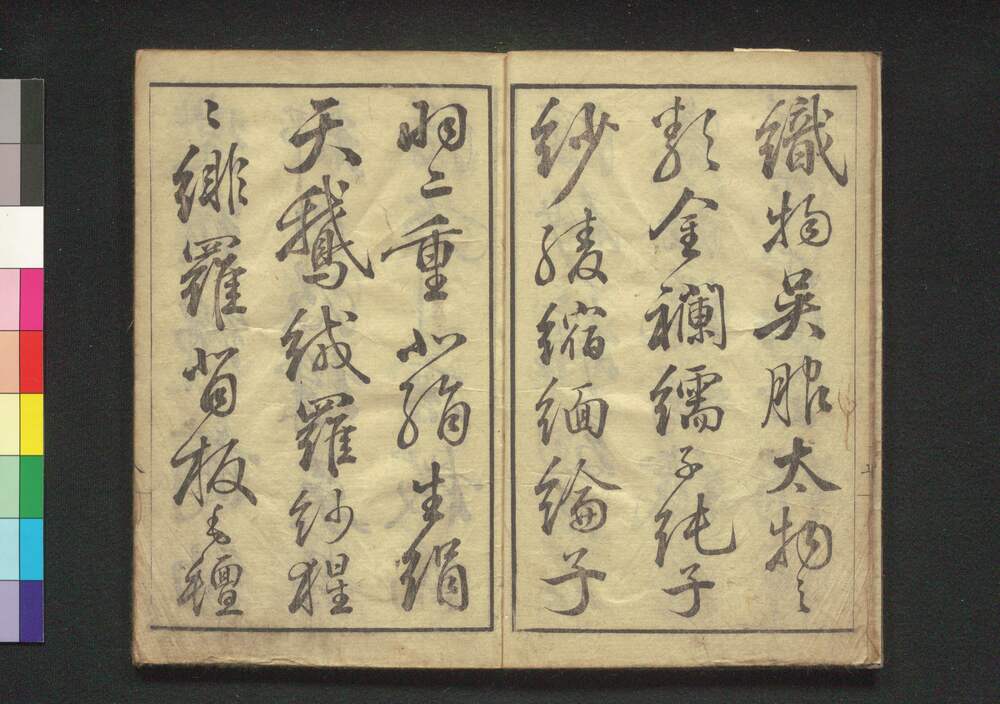 織物呉服太物之
類金襴繻子純子
紗綾縮緬綸子
羽二重北絹生絹
天鵞絨羅紗猩
々緋羅背板毛氈